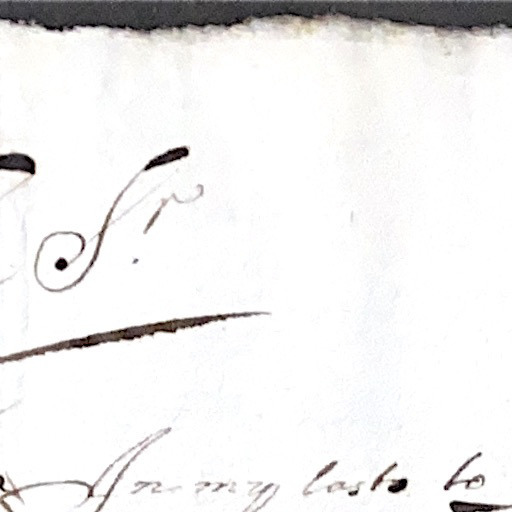 Sr
In my last to